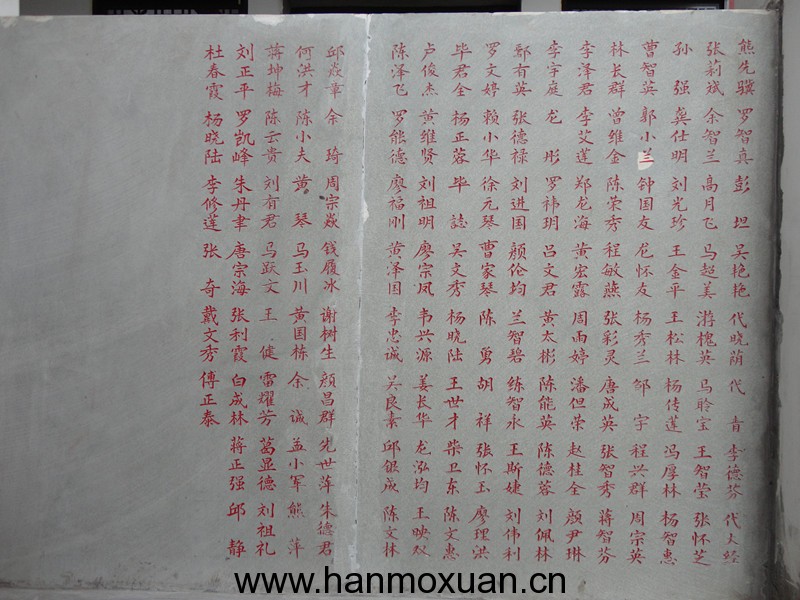 熊先骥 罗智真 彭坦 吴艳艳 代晓荫 代青 李德芬 代大经
张莉斌 余智兰 高月飞 马超美 游槐英 马聆宝 王智莹 张怀芝
孙强 龚仕明 刘光珍 王金平 王松林 杨传莲 冯厚林 杨智惠
曹智英 郭小兰 钟国友 龙怀友 杨秀兰 邹宇 程兴群 周宗英
林长群 曾维金 陈荣秀 程敏燕 张彩灵 唐成英 张智秀 蒋智芬
李泽君 李艾莲 郑龙海 黄宏露 周雨婷 潘但荣 赵桂全 颜尹琳
李宇庭 龙彤 罗祎玥 吕文君 黄太彬 陈能英 陈德蓉 刘佩林
鄢有英 张德禄 刘进国 颜伦均 兰智碧 练智永 王斯婕 刘伟利
罗文婷 赖小华 徐元琴 曹家琴 陈勇 胡祥 张怀玉 廖理洪
毕君全 杨正蓉 毕誌 吴文秀 杨晓陆 王世才 柴卫东 陈文惠
卢俊杰 黄维贤 刘祖明 廖宗凤 韦兴源 姜长华 龙泓均 王映双
陈泽飞 罗能德 廖福刚 黄泽国 李忠诚 吴良素 邱银成 陈文林
邱焱章 余琦 周宗焱 钱履冰 谢树生 颜昌群 先世萍 朱德君
何洪才 陈小夫 黄琴 马玉川 黄国栋 余诚 孟小军 熊萍
蒋坤梅 陈云贵 刘有君 马跃文 王健 雷耀芳 葛显德 刘祖礼
刘正平 罗凯峰 朱丹聿 唐宗海 张利霞 白成林 蒋正强 邱静
杜春霞 杨晓陆 李修莲 张奇 戴文秀 傅正泰
www.hanmoxuan.cn